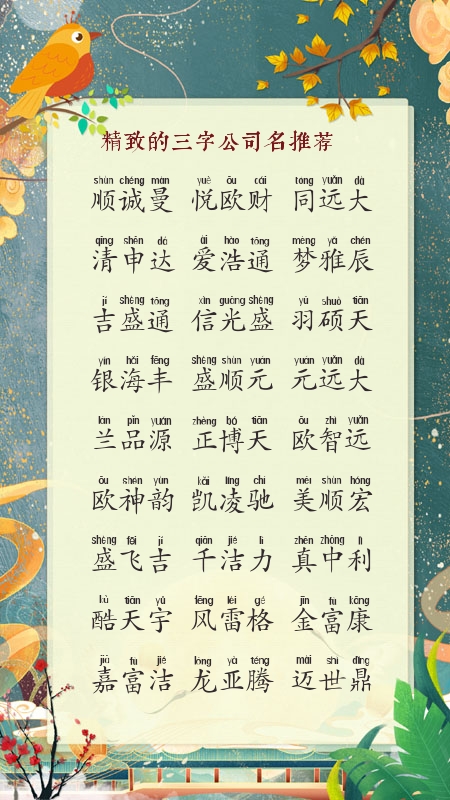 精致的三字公司名推荐
shùn chéng màn yuè ōu cái tóng yuǎn dà
顺诚曼 悦欧财 同远大
qīng shēn dá ài hào tōng mèng yǎ chén
清申达 爱浩通 梦雅辰
jí shèng tōng xìn guāng shèng yǔ shuò tiān
吉盛通 信光盛 羽硕天
yín hǎi fēng shèng shùn yuán yuán yuǎn dà
银海丰 盛顺元 元远大
lán pǐn yuán zhèng bó tiān ōu zhì yuǎn
兰品源 正博天 欧智远
ōu shén yùn kǎi líng chí měi shùn hóng
欧神韵 凯凌驰 美顺宏
shèng fēi jí qiān jié lì zhēn zhōng lì
盛飞吉 千洁力 真中利
kù tiān yǔ fēng léi gé jīn fù kāng
酷天宇 风雷格 金富康
jiā fù jié lóng yà téng mài shì dǐng
嘉富洁 龙亚腾 迈世鼎